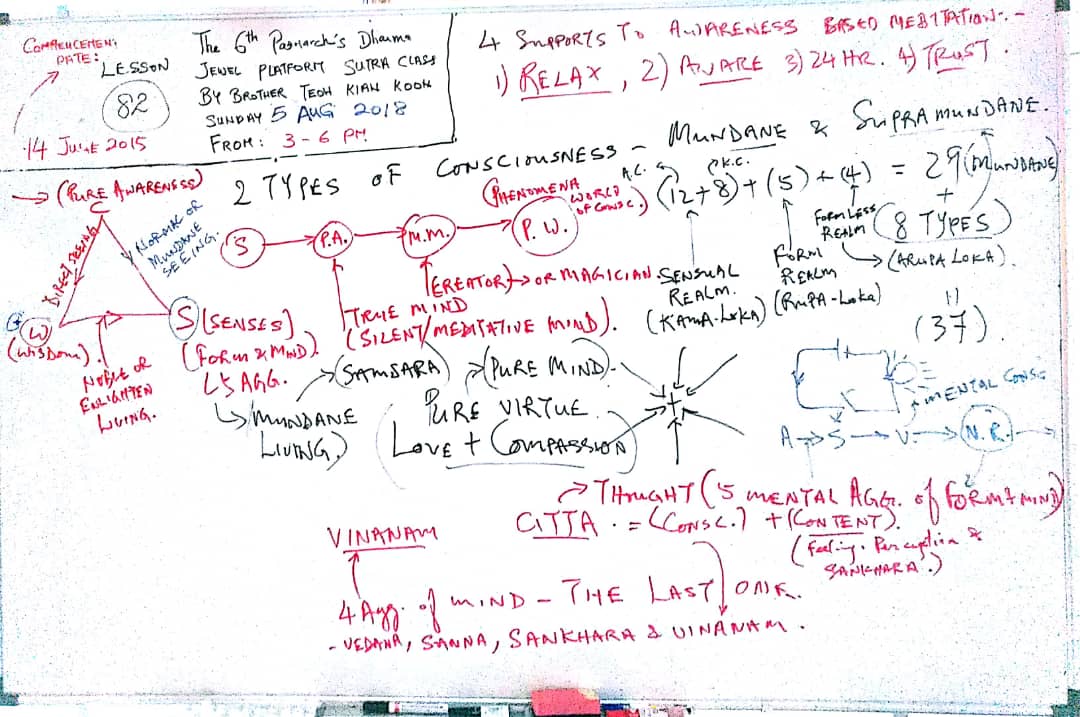 COMMENCEMENT
DATE:
14 JUNE 2015
LESSON
82
The 6th Patriarch's Dharma
JEWEL PLATFORM SUTRA CLASS
BY BROTHER TEOH KIAN KOON
SUNDAY 5 AUG 2018
FROM: 3-6 PM
4 SUPPORTS TO AWARENESS BASED MEDITATION:-
1) RELAX, 2) AWARE 3) 24 HR. 4) TRUST.
2 TYPES OF CONSCIOUSNESS - MUNDANE & SUPRAMUNDANE.
(PURE AWARENESS)
C
DIRECT SEEING
NORMAL OR
MUNDANE
SEEING.
W
(WISDOM).
NOBLE OR
ENLIGHTEN
LIVING.
S (SENSES)
(FORM & MIND).
5 AGG.
(SAMSARA)
MUNDANE
LIVING)
S
P.A.
M.M.
P.W.
(PHENOMENA
WORLD
OF CONSC.)
(CREATOR) OR MAGICIAN.
TRUE MIND
(SILENT/MEDITATIVE MIND).
A.C.
K.C.
(12+8)+(5)+(4) = 29(MUNDANE)
+
(8 TYPES)
=
(37).
SENSUAL
REALM.
(KAMA-LOKA)
FORM
REALM
(RUPA-LOKA)
FORMLESS
REALM
(ARUPA LOKA).
(PURE MIND).
PURE VIRTUE.
(LOVE + COMPASSION)
MENTAL CONSC
A S V. N.R.
THOUGHT (5 MENTAL AGG. of FORM & MIND)
CITTA . = (CONSC.) + (CONTENT).
(Feeling. Perception &
SANKHARA.)
VINANAM
4 Agg. of MIND - THE LAST ONE.
- VEDANA, SANNA, SANKHARA & VINANAM.